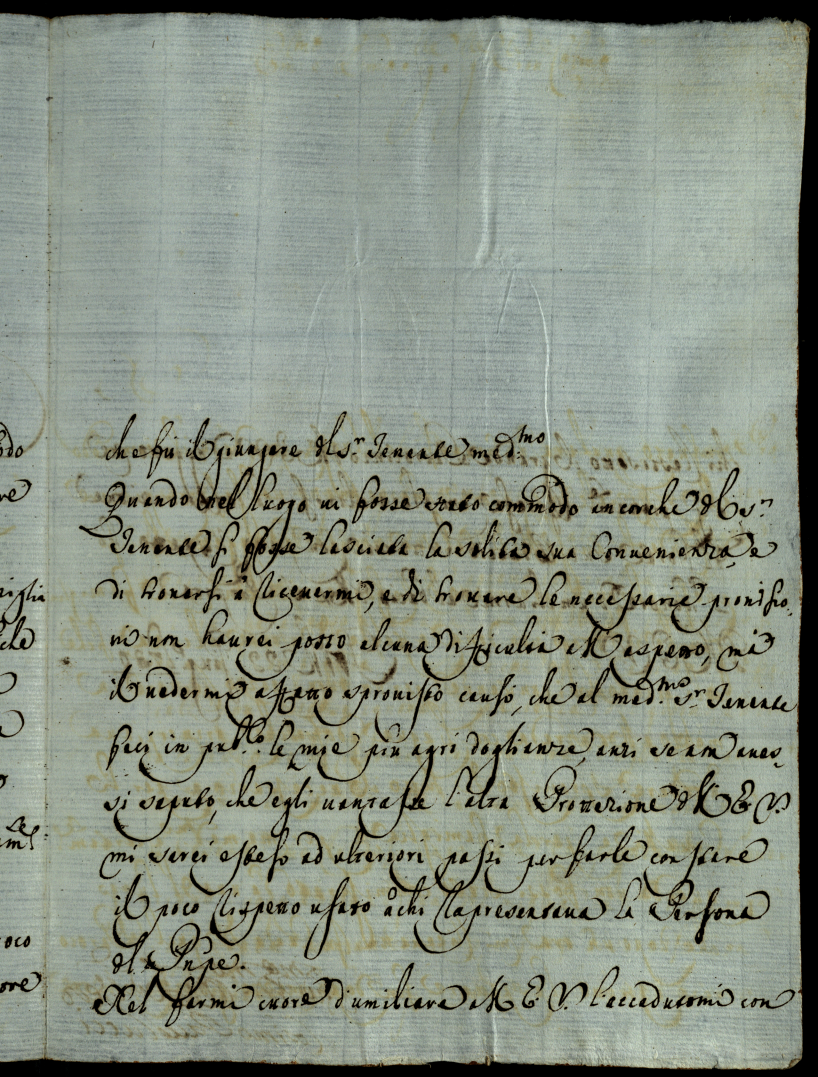 che fù il giungere del Sr. Tenente med.mo
Quando nel luogo ui fosse stato commodo ancorche del Sr.
Tenente si fosse lasciata la solita sua Conuenienza e
di trouarsi à riceuermi, e di trouare le necessarie prouisio,
ni non haurei posto alcuna difficultà al aspetto, mà
il uedermi affatto sprouisto causò, che al med.mo Sr. Tenente
feci in pub.co le mie più agri doglianze, anzi se non aues,
si saputo, che egli uantasse l'alta Protezione dell' E. V.
mi sarei esteso ad ulteriori passi per farle constare
il poco rispetto usato à chi rapresentaua la Persona
del Pnpe.
Nel farmi cuore d'umiliare all' E. V. l'accadutomi con
do
re
riglia
che
poco
ore